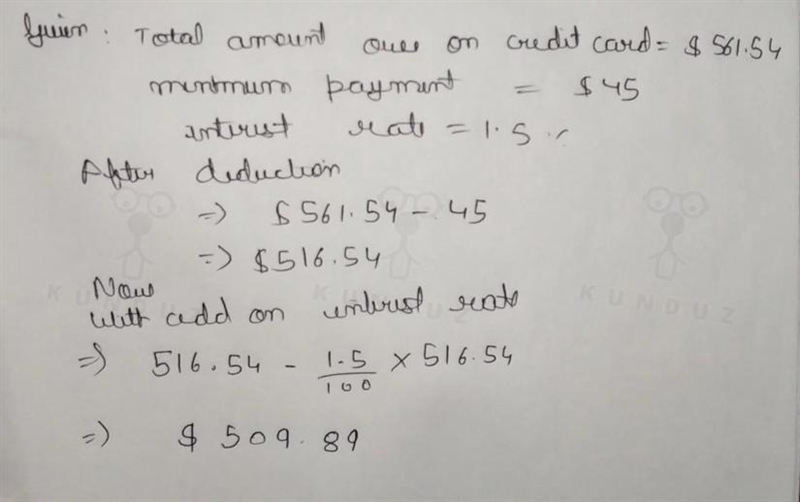 Given : Total amount owes on credit card = $ 561.54
minimum payment = $ 45
interest rate = 1.5 %
After deduction
=> $ 561.54 - 45
=> $ 516.54
Now
With add on interest rate
=> 516.54 - 1.5/100 × 516.54
=> $ 509.89
KUNDUZ
KUNDUZ
KUNDUZ